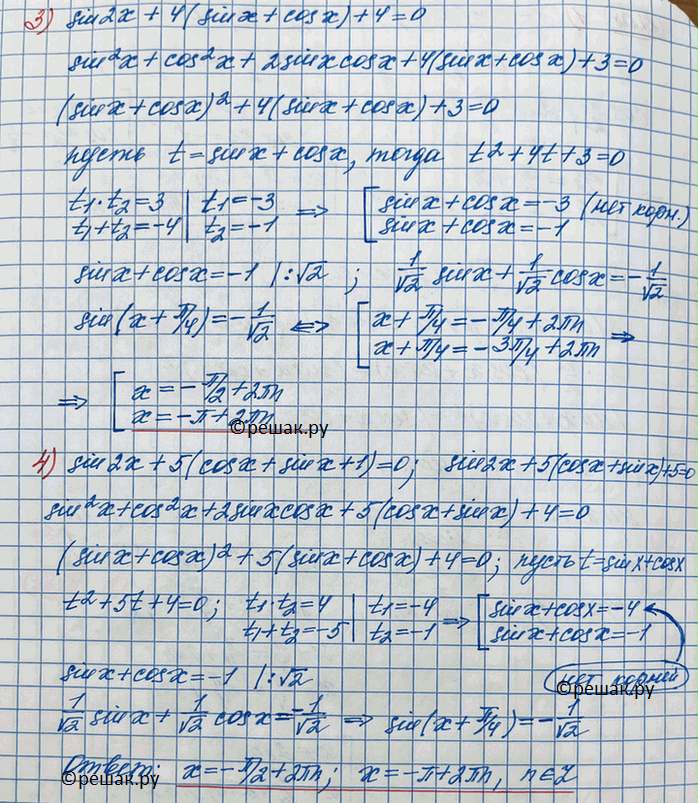 3) sin2x + 4(sinx + cosx) + 4 = 0
sin²x + cos²x + 2sinxcosx + 4(sinx + cosx) + 3 = 0
(sinx + cosx)² + 4(sinx + cosx) + 3 = 0
пусть t = sinx + cosx, тогда t² + 4t + 3 = 0
t₁·t₂ = 3 | t₁ = -3 ⇒ [ sinx + cosx = -3 (нет корн.)
t₁ + t₂ = -4 | t₂ = -1 [ sinx + cosx = -1
sinx + cosx = -1 |:√2 ; 1/√2 sinx + 1/√2 cosx = -1/√2
sin(x + π/4) = -1/√2 ⇔ [ x + π/4 = -π/4 + 2πn
[ x + π/4 = -3π/4 + 2πn ⇒
⇒ [ x = -π/2 + 2πn
[ x = -π + 2πn
©решак.ру
4) sin2x + 5(cosx + sinx + 1) = 0; sin2x + 5(cosx + sinx) + 5 = 0
sin²x + cos²x + 2sinxcosx + 5(cosx + sinx) + 4 = 0
(sinx + cosx)² + 5(sinx + cosx) + 4 = 0; пусть t = sinx + cosx
t² + 5t + 4 = 0; t₁·t₂ = 4 | t₁ = -4 ⇒ [ sinx + cosx = -4
t₁ + t₂ = -5 | t₂ = -1 [ sinx + cosx = -1
sinx + cosx = -1 |:√2 нет корней
©решак.ру
1/√2 sinx + 1/√2 cosx = -1/√2 ⇒ sin(x + π/4) = -1/√2
Ответ: x = -π/2 + 2πn; x = -π + 2πn, n ∈ Z
©решак.ру